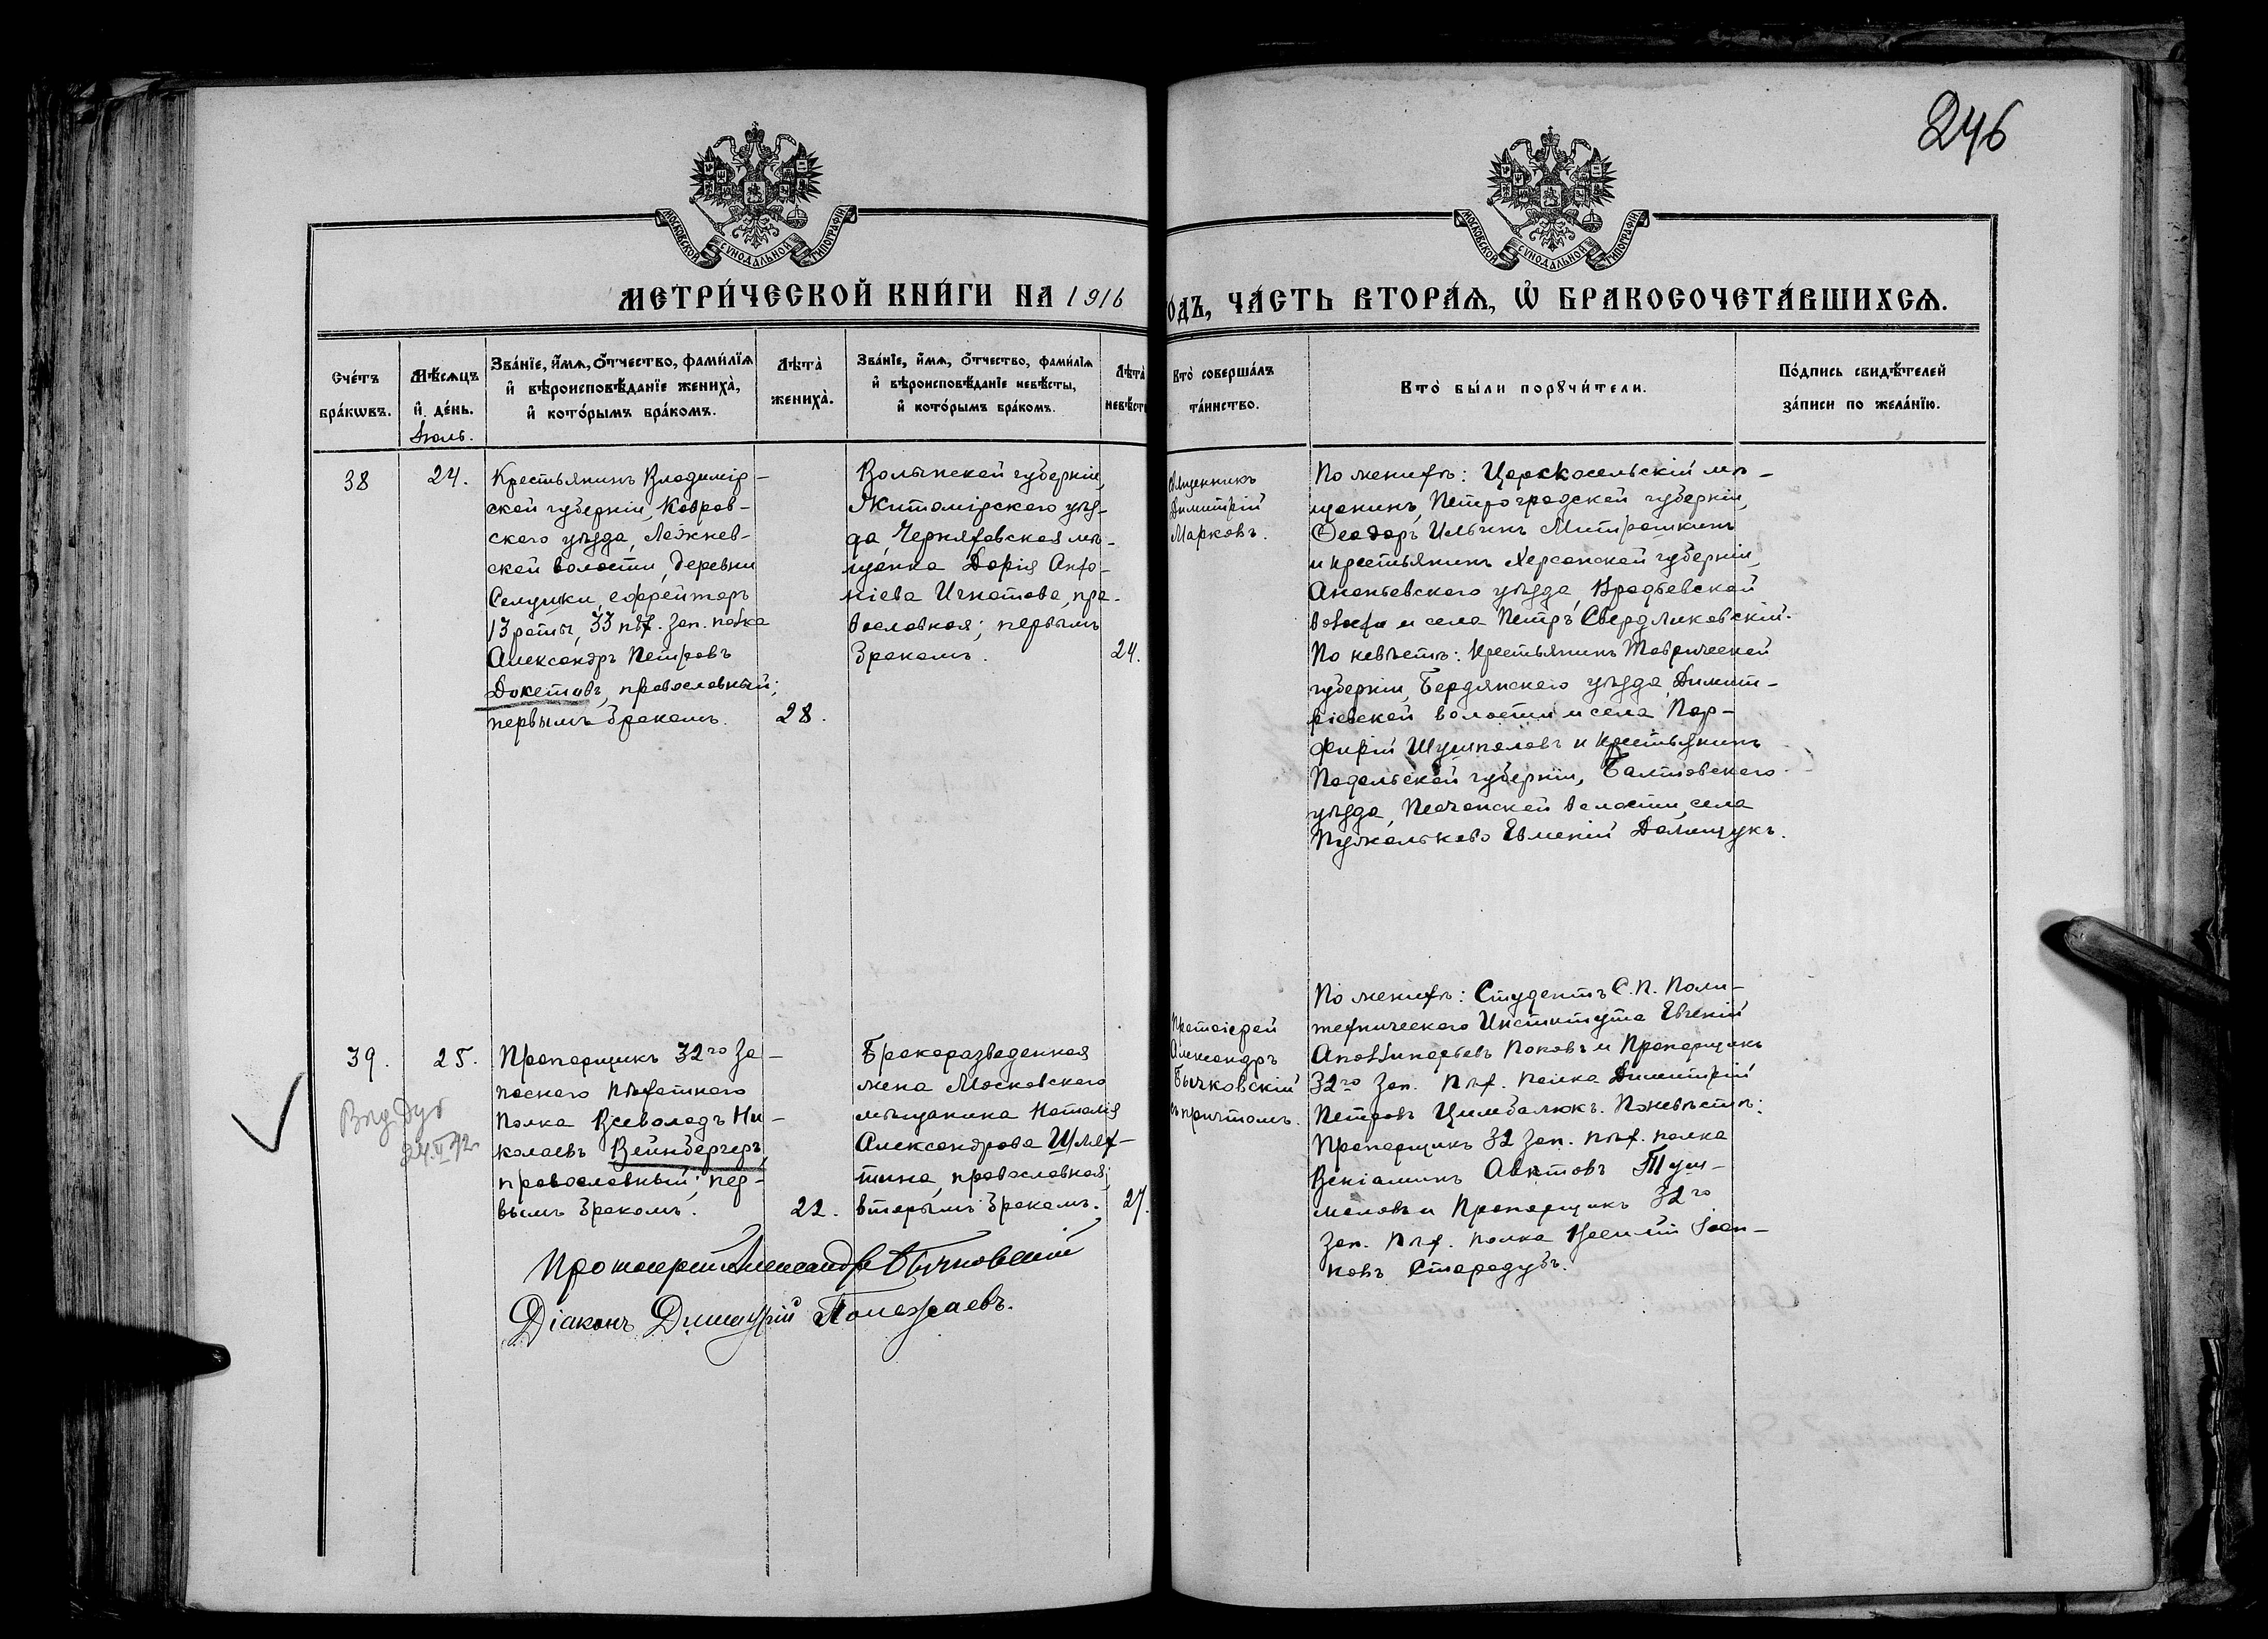 246
МОСКОВСКОЙ СѴНОДАЛЬНОЙ ТИПОГРАФІИ
МОСКОВСКОЙ СѴНОДАЛЬНОЙ ТИПОГРАФІИ
МЕТРИ́ЧЕСКОЙ КНИ́ГИ НА 1916
ОДЪ, ЧА́СТЬ ВТОРА́Ѧ, Ѡ҆ БРАКОСОЧЕТА́ВШИХСѦ.
Сче́тъ
бра́кѡвъ.
Мѣ́сѧцъ
и҆ де́нь.
Іюль.
Зва́нїе, и҆́мѧ, ѻ҆́тчество, фами́лїѧ
и҆ вѣроисповѣ́данїе жениха̀,
и҆ кото́рымъ бра́комъ.
Лѣ́та̀
жениха̀.
Зва́нїе, и҆́мѧ, ѻ҆́тчество, фами́лїѧ
и҆ вѣроисповѣ́данїе невѣ́сты,
и҆ кото́рымъ бра́комъ.
Лѣ́та̀
невѣ́сты
Кто̀ соверша́лъ
та́инство.
Кто̀ бы́ли порꙋчи́тели.
По́дпись свидѣ́телей
за́писи по жела́нїю.
38
24.
Крестьянинъ Владимір-
ской губерніи, Ковров-
скаго уѣзда, Лежнев-
ской волости, деревни
Селушки, ефрейторъ
13 роты, 33 пѣх. зап. полка
Александръ Петровъ
Докетовъ, православный;
первымъ бракомъ.
28.
Волынской губерніи,
Житомірскаго уѣз-
да, Черняховская мѣ-
щанка Дарія Анто-
ніева Игнатова, пра-
вославная; первымъ
бракомъ.
24.
Священникъ
Димитрій
Марковъ.
По женихѣ: Царскосельскій мѣ-
щанинъ, Петроградской губерніи,
Ѳеодоръ Ильинъ Митрошкинъ
и крестьянинъ Херсонской губерніи,
Ананьевскаго уѣзда, Врадіевской
волости и села Петръ Свердликовскій.
По невѣстѣ: крестьянинъ Таврической
губерніи, Бердянскаго уѣзда, Димит-
ріевской волости и села Пор-
фирій Шушпановъ и крестьянинъ
Подольской губерніи, Балтовскаго
уѣзда, Песчанской волости, села
Евменій Далищукъ.
39.
25.
Вид дуб
24.VI 72
Прапорщикъ 32го За-
паснаго Пѣхотнаго
Полка Всеволодъ Ни-
колаевъ Вейнбергеръ,
православный; пер-
вымъ бракомъ.
22.
Бракоразведенная
жена Московскаго
мѣщанина Наталія
Александрова Шмех-
тина, православная;
вторымъ бракомъ.
27.
Протоіерей
Александръ
Бычковскій
съ причтомъ.
По женихѣ: Студентъ С.П. Поли-
техническаго Института Евгеній
Аполлинарьевъ Поковъ и Прапорщикъ
32го Зап. Пѣх. Полка Димитрій
Петровъ Цимбалюкъ. По невѣстѣ:
Прапорщикъ 32 Зап. пѣх. полка
Веніаминъ Авктовъ Туш-
маловъ и Прапорщикъ 32го
Зап. Пѣх. Полка Іоан-
новъ Стародубъ.
Протоіерей Александръ Бычковскій
Діаконъ Димитрій